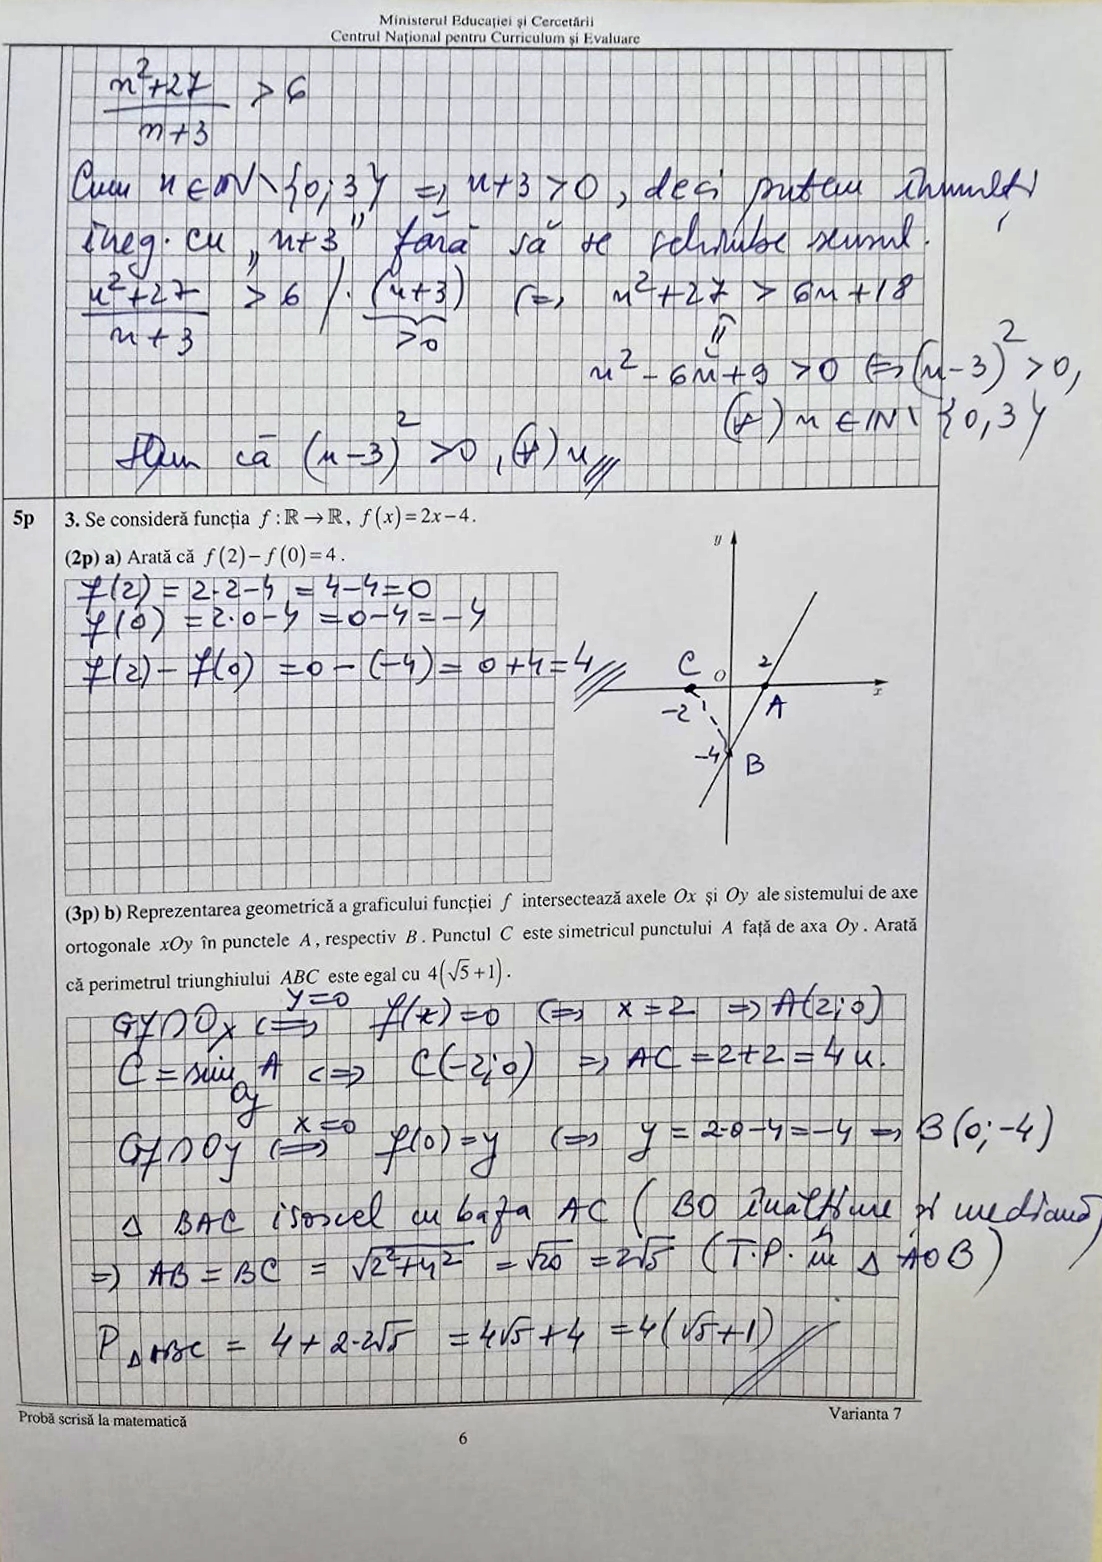 Ministerul Educației și Cercetării
Centrul Național pentru Curriculum și Evaluare
n²+27 / n+3 > 6
Cum n ∈ ℕ \ {0; 3} ⇒ n+3 > 0, deci putem înmulți
ineg. cu „n+3” fără să se schimbe sensul.
n²+27 / n+3 > 6 / · (n+3) ⇔ n²+27 > 6n+18
>0
⇕
n² - 6n + 9 > 0 ⇔ (n-3)² > 0,
(∀) n ∈ ℕ \ {0, 3}
că (n-3)² > 0, (∀) n
5p
3. Se consideră funcția f : ℝ → ℝ, f(x) = 2x − 4.
(2p) a) Arată că f(2) − f(0) = 4.
f(2) = 2·2-4 = 4-4=0
f(0) = 2·0-4 = 0-4 = -4
f(2) - f(0) = 0-(-4) = 0+4 = 4
y
C
O
2
x
-2
A
-4
B
(3p) b) Reprezentarea geometrică a graficului funcției f intersectează axele Ox și Oy ale sistemului de axe
ortogonale xOy în punctele A, respectiv B. Punctul C este simetricul punctului A față de axa Oy. Arată
că perimetrul triunghiului ABC este egal cu 4(√5+1).
Gf ∩ Ox ⇔ y=0 f(x)=0 ⇔ x=2 ⇒ A(2;0)
C = sim Oy A ⇔ C(-2;0) ⇒ AC = 2+2 = 4 u.
Gf ∩ Oy ⇔ x=0 f(0)=y ⇔ y = 2·0-4 = -4 ⇒ B(0;-4)
Δ BAC isoscel cu baza AC (BO înălțime și mediană)
⇒ AB = BC = √2²+4² = √20 = 2√5 (T.P. în Δ AOB)
P ΔABC = 4+2·2√5 = 4√5+4 = 4(√5+1)
Probă scrisă la matematică
Varianta 7
6